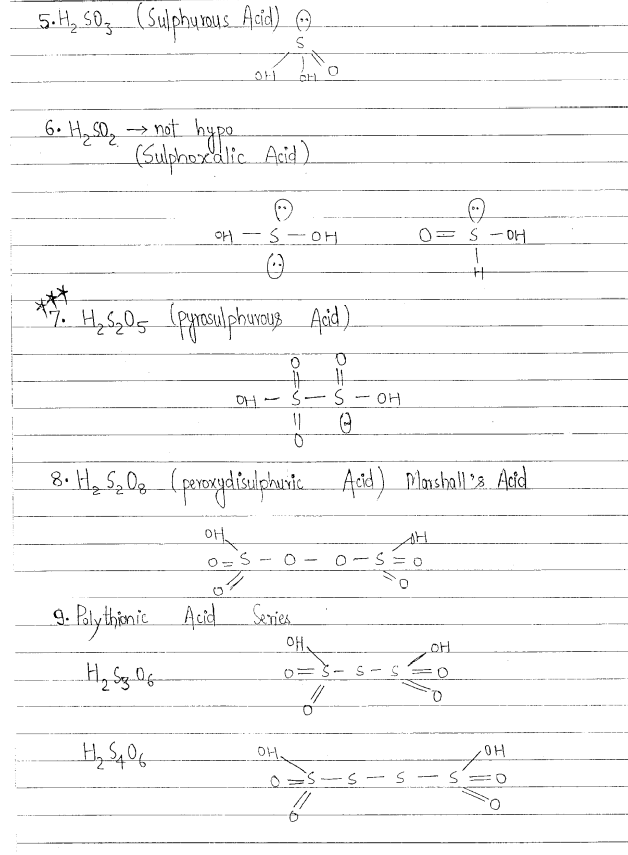 5. H₂SO₃ (Sulphurous Acid)
S
OH OH O
6. H₂SO₂ → not hypo
(Sulphoxalic Acid)
OH — S — OH O = S — OH
H
*** 7. H₂S₂O₅ (pyrosulphurous Acid)
O O
OH — S — S — OH
O
8. H₂S₂O₈ (peroxydisulphuric Acid) Marshall's Acid
OH OH
O = S — O — O — S = O
O O
9. Polythionic Acid Series
OH OH
H₂S₃O₆ O = S — S — S = O
O O
H₂S₄O₆ OH OH
O = S — S — S — S = O
O O